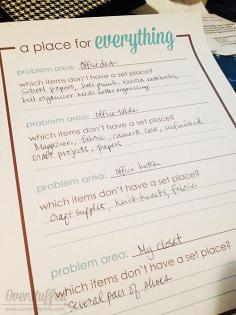 a place for everything
problem area: Office desk
which items don't have a set place?
papers,
bill organizer needs better organizing
problem area: office table
which items don't have a set place?
Magazines, fabric, camera case, unfinished
craft projects, papers
problem area: office hutch
which items don't have a set place?
craft supplies, knick knacks, fabric
problem area: My closet
which items don't have a set place?
several pairs of shoes
Overstuffed